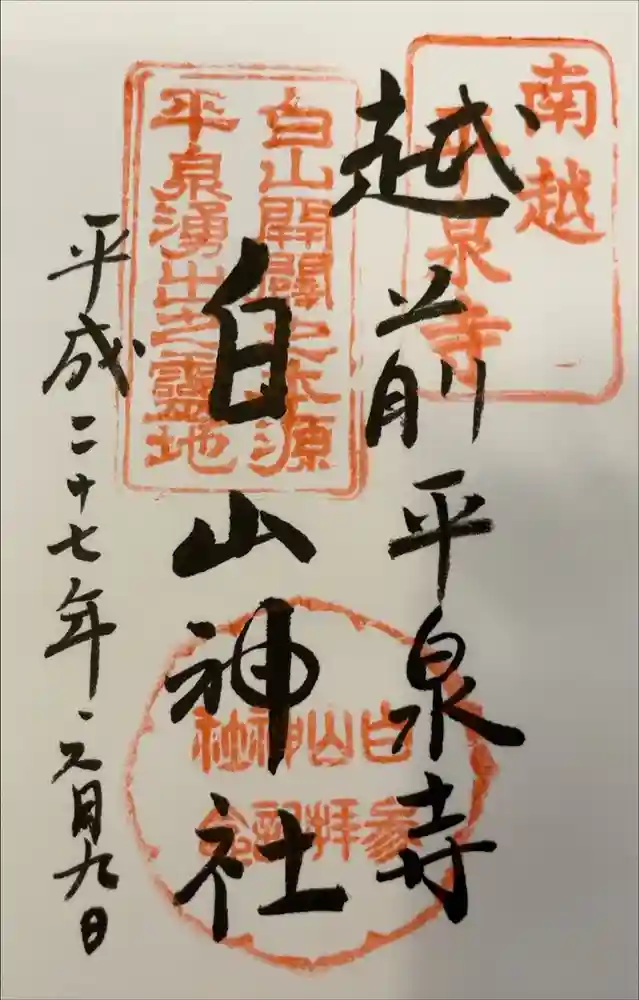 南越
平泉寺
越前平泉寺
白山開闢之本源
平泉湧出之靈地
白山神社
白山神社
参拝記念
平成二十七年六月九日